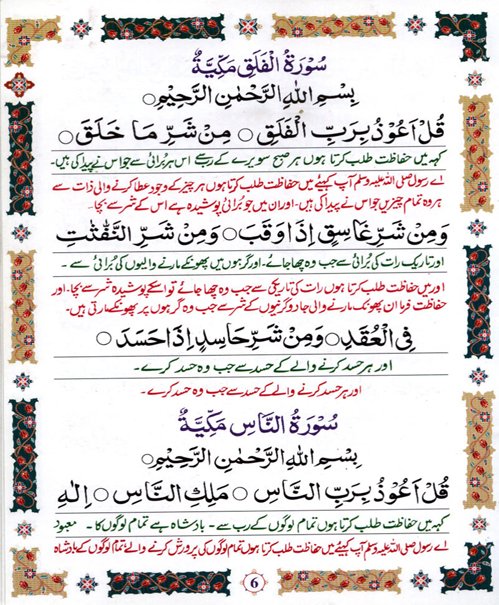 سُوْرَةُ الْفَلَقِ مَكِّيَّةٌ
بِسْمِ اللّٰهِ الرَّحْمٰنِ الرَّحِيْمِ○
قُلْ اَعُوْذُ بِرَبِّ الْفَلَقِ○ مِنْ شَرِّ مَا خَلَقَ○
کہہ میں حفاظت طلب کرتا ہوں ہر صبح سویرے کے رب سے اس ہر بُرائی سے جو اس نے پیدا کی ہیں۔
اے رسول صلی اللہ علیہ وسلم آپ کہیئے میں حفاظت طلب کرتا ہوں ہر چیز کے وجود عطا کرنے والی ذات سے
ہر وہ تمام چیزیں جو اس نے پیدا کی ہیں۔ اور ان میں جو بُرائی پوشیدہ ہے اس کے شر سے بچا۔
وَمِنْ شَرِّ غَاسِقٍ اِذَا وَقَبَ○ وَمِنْ شَرِّ النَّفّٰثٰتِ
اور تاریک رات کی بُرائی سے جب وہ چھا جائے۔ اور گرہوں میں پھونکے مارنے والیوں کی بُرائی سے ۔
اور میں حفاظت طلب کرتا ہوں رات کی تاریکی سے جب وہ چھا جائے تو اسکے پوشیدہ شر سے بچا۔ اور
حفاظت فرما ان پھونک مارنے والی جادوگرنیوں کے شر سے جب وہ گرہوں پر پھونکے مارتی ہیں۔
فِى الْعُقَدِ○ وَمِنْ شَرِّ حَاسِدٍ اِذَا حَسَدَ○
اور ہر حسد کرنے والے کے حسد سے جب وہ حسد کرے ۔
اور ہر حسد کرنے والے کے حسد سے جب وہ حسد کرے ۔
سُوْرَةُ النَّاسِ مَكِّيَّةٌ
بِسْمِ اللّٰهِ الرَّحْمٰنِ الرَّحِيْمِ○
قُلْ اَعُوْذُ بِرَبِّ النَّاسِ○ مَلِكِ النَّاسِ○ اِلٰهِ
کہہ میں حفاظت طلب کرتا ہوں تمام لوگوں کے رب سے ۔ بادشاہ ہے تمام لوگوں کا ۔ معبود
اے رسول صلی اللہ علیہ وسلم آپ کہیئے میں حفاظت طلب کرتا ہوں تمام لوگوں کی پرورش کرنے والے تمام لوگوں کے بادشاہ
6